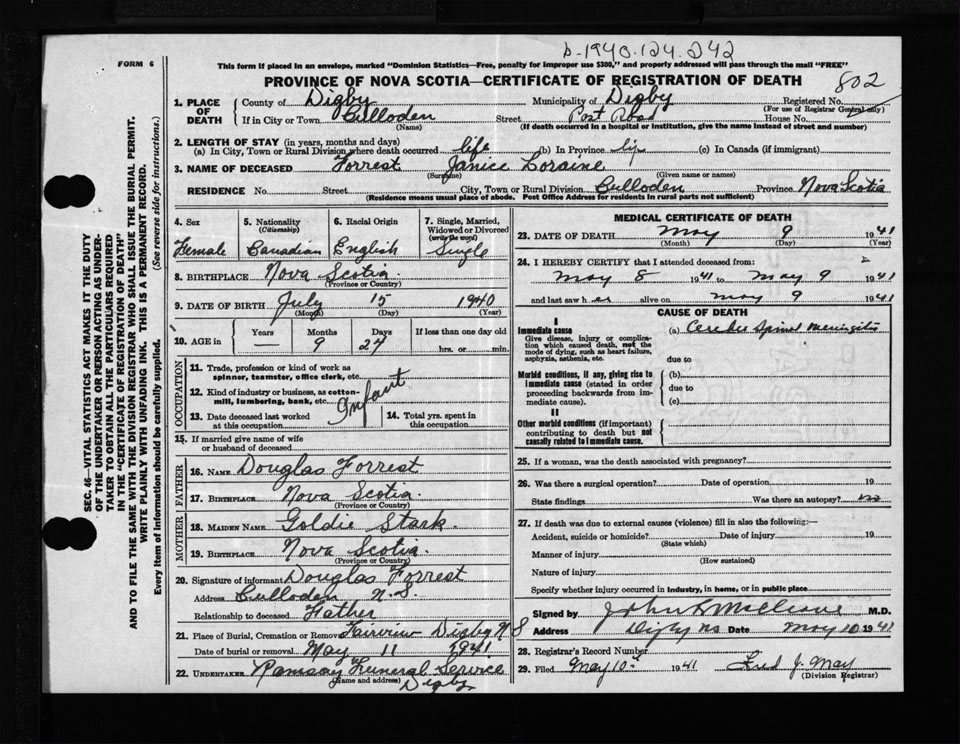 D-1940.124.242
FORM 6
This form if placed in an envelope, marked "Dominion Statistics—Free, penalty for improper use $300," and properly addressed will pass through the mail "FREE"
802
PROVINCE OF NOVA SCOTIA—CERTIFICATE OF REGISTRATION OF DEATH
SEC. 46—VITAL STATISTICS ACT MAKES IT THE DUTY
OF THE UNDERTAKER OR PERSON ACTING AS UNDER-
TAKER TO OBTAIN ALL THE PARTICULARS REQUIRED
IN THE "CERTIFICATE OF REGISTRATION OF DEATH"
AND TO FILE THE SAME WITH THE DIVISION REGISTRAR WHO SHALL ISSUE THE BURIAL PERMIT.
WRITE PLAINLY WITH UNFADING INK. THIS IS A PERMANENT RECORD.
Every item of information should be carefully supplied. (See reverse side for instructions.)
1. PLACE OF DEATH County of Digby Municipality of Digby Registered No.
(For use of Registrar General only)
If in City or Town Culloden Street Post Road House No.
(Name) (If death occurred in a hospital or institution, give the name instead of street and number)
2. LENGTH OF STAY (in years, months and days)
(a) In City, Town or Rural Division where death occurred life (b) In Province life (c) In Canada (if immigrant)
3. NAME OF DECEASED Forrest Janice Loraine
(Surname) (Given name or names)
RESIDENCE No. Street City, Town or Rural Division Culloden Province Nova Scotia
(Residence means usual place of abode. Post Office Address for residents in rural parts not sufficient)
4. Sex Female
5. Nationality (Citizenship) Canadian
6. Racial Origin English
7. Single, Married, Widowed or Divorced (write the word) Single
8. BIRTHPLACE Nova Scotia
(Province or Country)
9. DATE OF BIRTH July 15 1940
(Month) (Day) (Year)
10. AGE in Years — Months 9 Days 24 If less than one day old hrs. or min.
OCCUPATION
11. Trade, profession or kind of work as
spinner, teamster, office clerk, etc.
12. Kind of industry or business, as cotton-
mill, lumbering, bank, etc. Infant
13. Date deceased last worked
at this occupation
14. Total yrs. spent in
this occupation
15. If married give name of wife
or husband of deceased
FATHER
16. NAME Douglas Forrest
17. BIRTHPLACE Nova Scotia.
(Province or Country)
MOTHER
18. MAIDEN NAME Goldie Stark.
19. BIRTHPLACE Nova Scotia.
(Province or Country)
20. Signature of informant Douglas Forrest
Address Culloden N.S.
Relationship to deceased Father
21. Place of Burial, Cremation or Removal Fairview Digby N S
Date of burial or removal May 11 1941
22. UNDERTAKER Ramsay Funeral Service
(Name and address) Digby
MEDICAL CERTIFICATE OF DEATH
23. DATE OF DEATH May 9 1941
(Month) (Day) (Year)
24. I HEREBY CERTIFY that I attended deceased from:
May 8 1941 to May 9 1941
and last saw her alive on May 9 1941
CAUSE OF DEATH
I
Immediate cause (a) Cerebro Spinal Meningitis
Give disease, injury or complica-
tion which caused death, not the
mode of dying, such as heart failure,
asphyxia, asthenia, etc. due to
Morbid conditions, if any, giving rise to (b)
immediate cause (stated in order due to
proceeding backwards from im-
mediate cause). (c)
II
Other morbid conditions (if important)
contributing to death but not
causally related to immediate cause.
25. If a woman, was the death associated with pregnancy?
26. Was there a surgical operation? Date of operation 19
State findings Was there an autopsy? no
27. If death was due to external causes (violence) fill in also the following:—
Accident, suicide or homicide? Date of injury 19
(State which)
Manner of injury
(How sustained)
Nature of injury
Specify whether injury occurred in industry, in home, or in public place
Signed by M.D.
Address Digby NS Date May 10 1941
28. Registrar's Record Number
29. Filed May 10th 1941 Fred J. May
(Division Registrar)